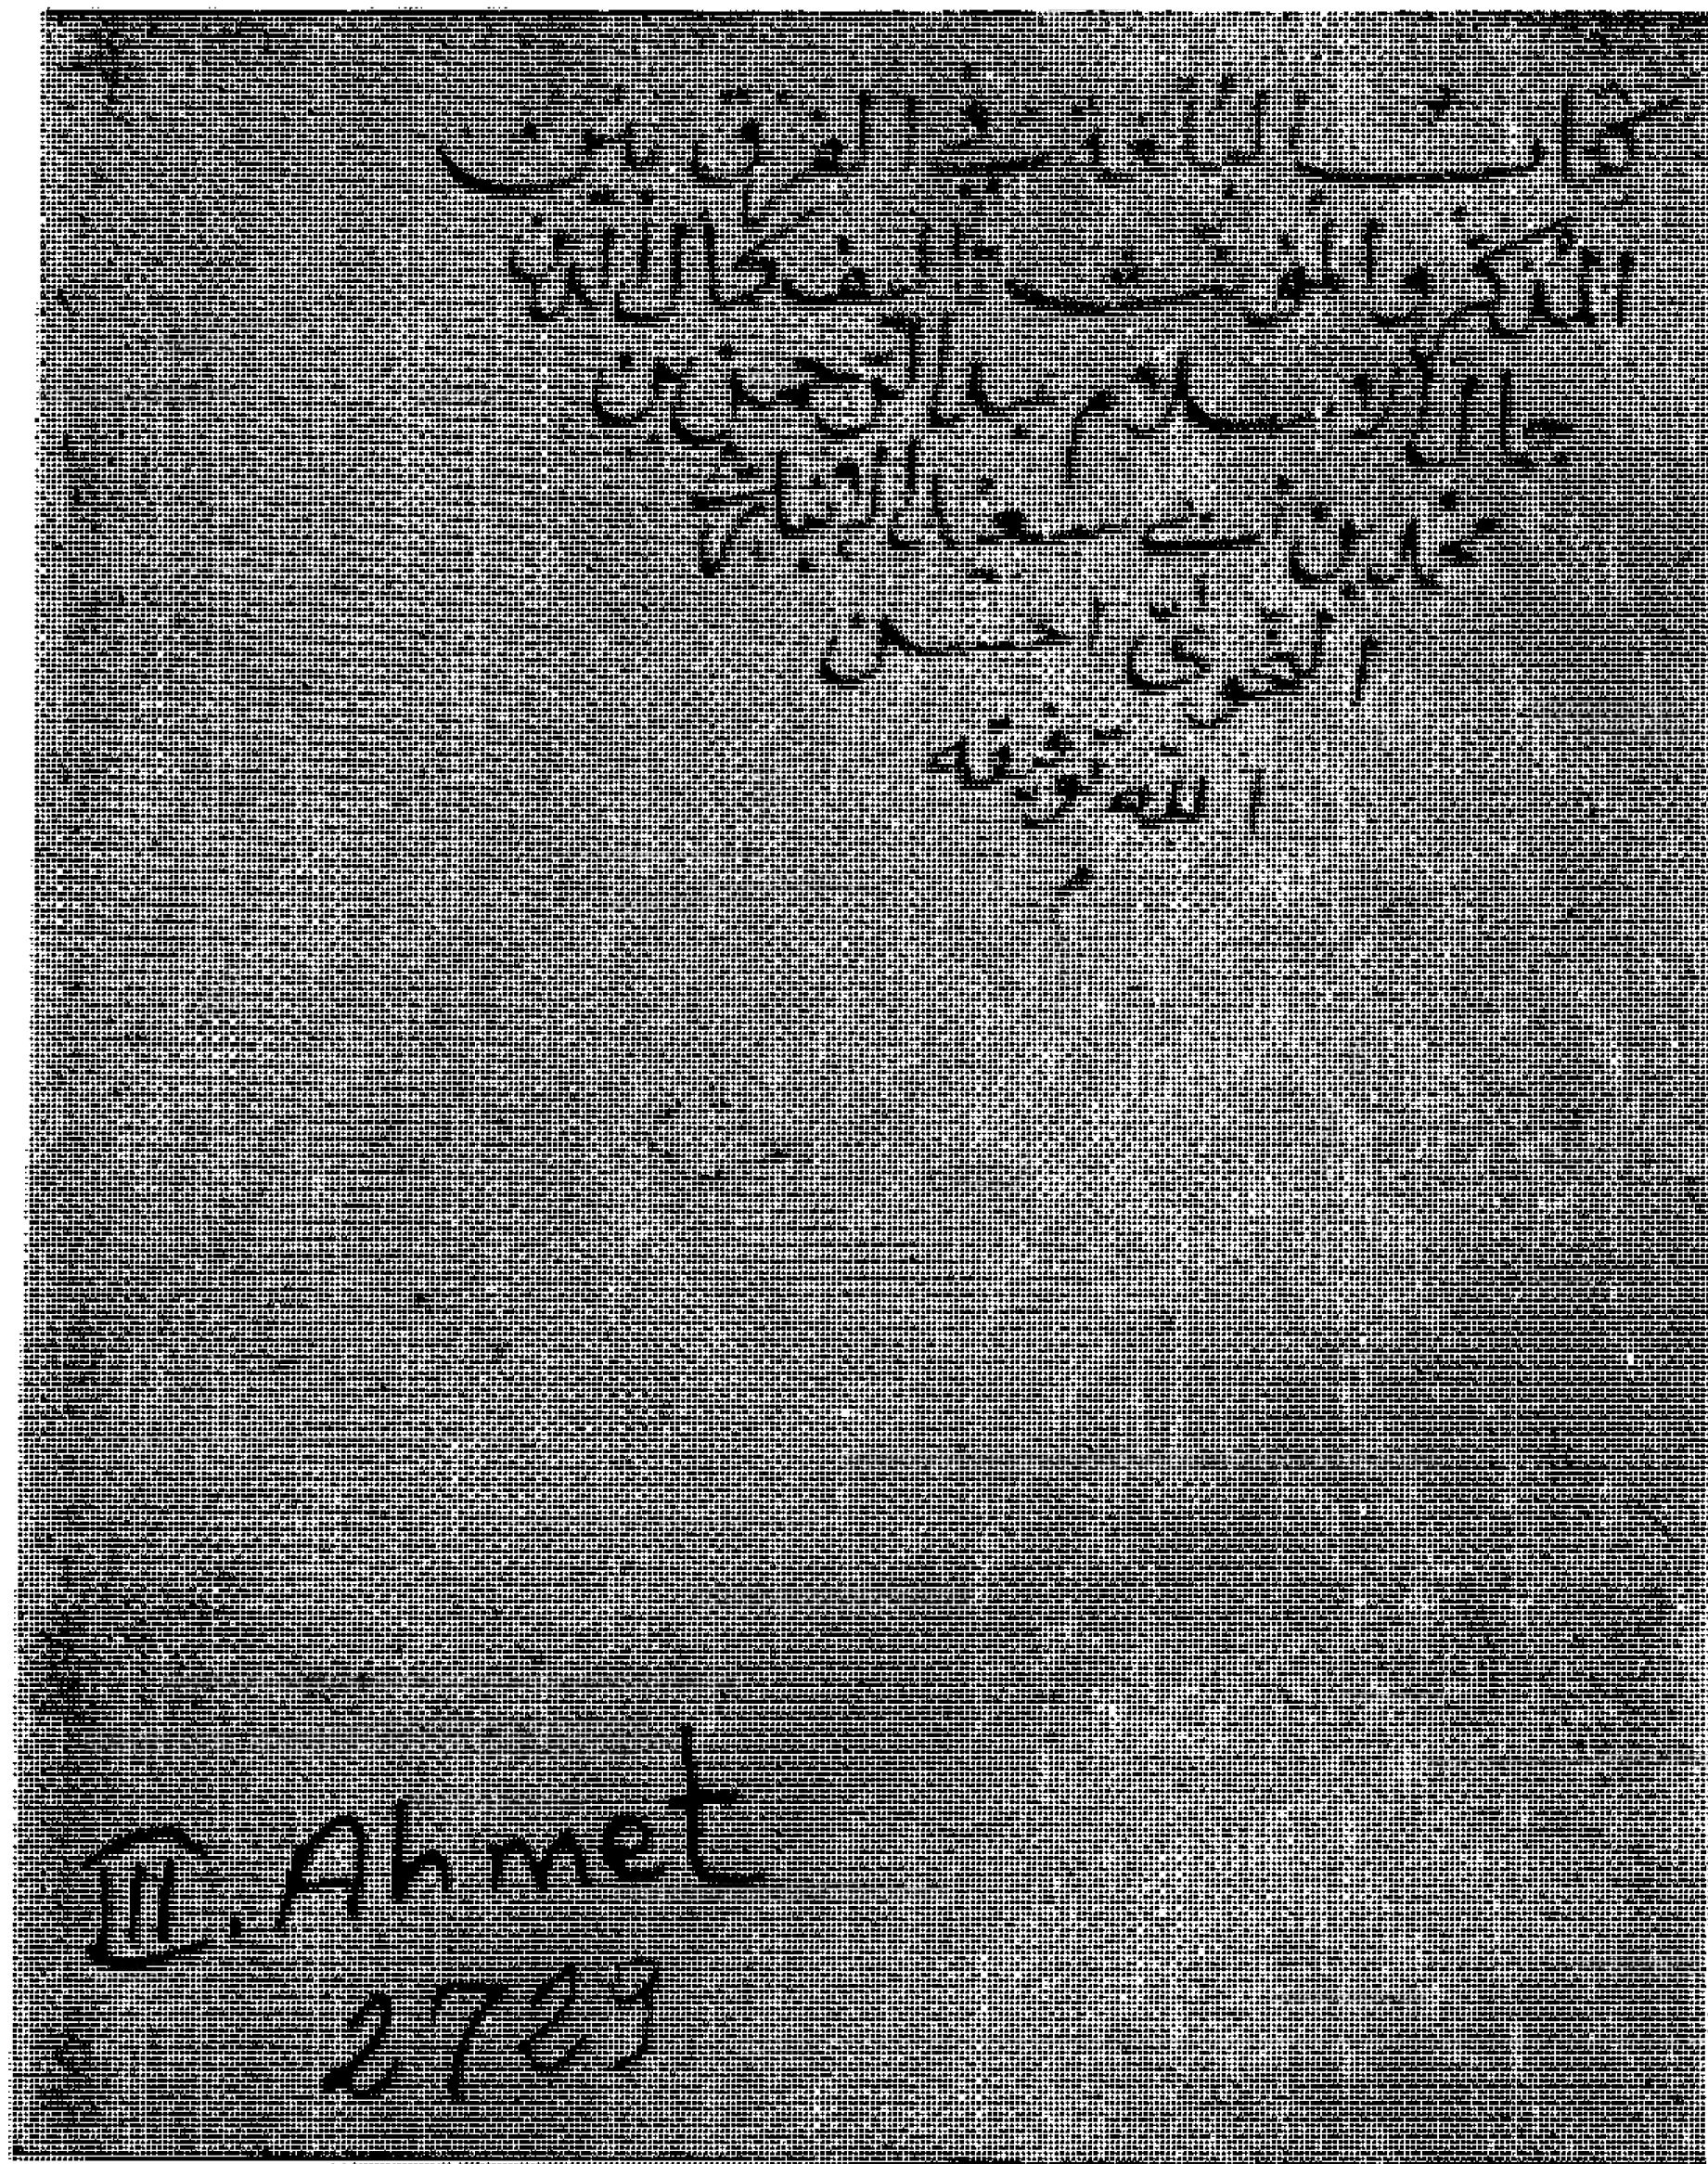 كتاب البلغة في الفرق بين
المذكر والمؤنث تاليف كمال الدين
جمال الاسلام عبد الرحمن بن
محمد بن ابي سعيد الانباري
النحوي احسن
الله توفيقه
III. Ahmet
2729